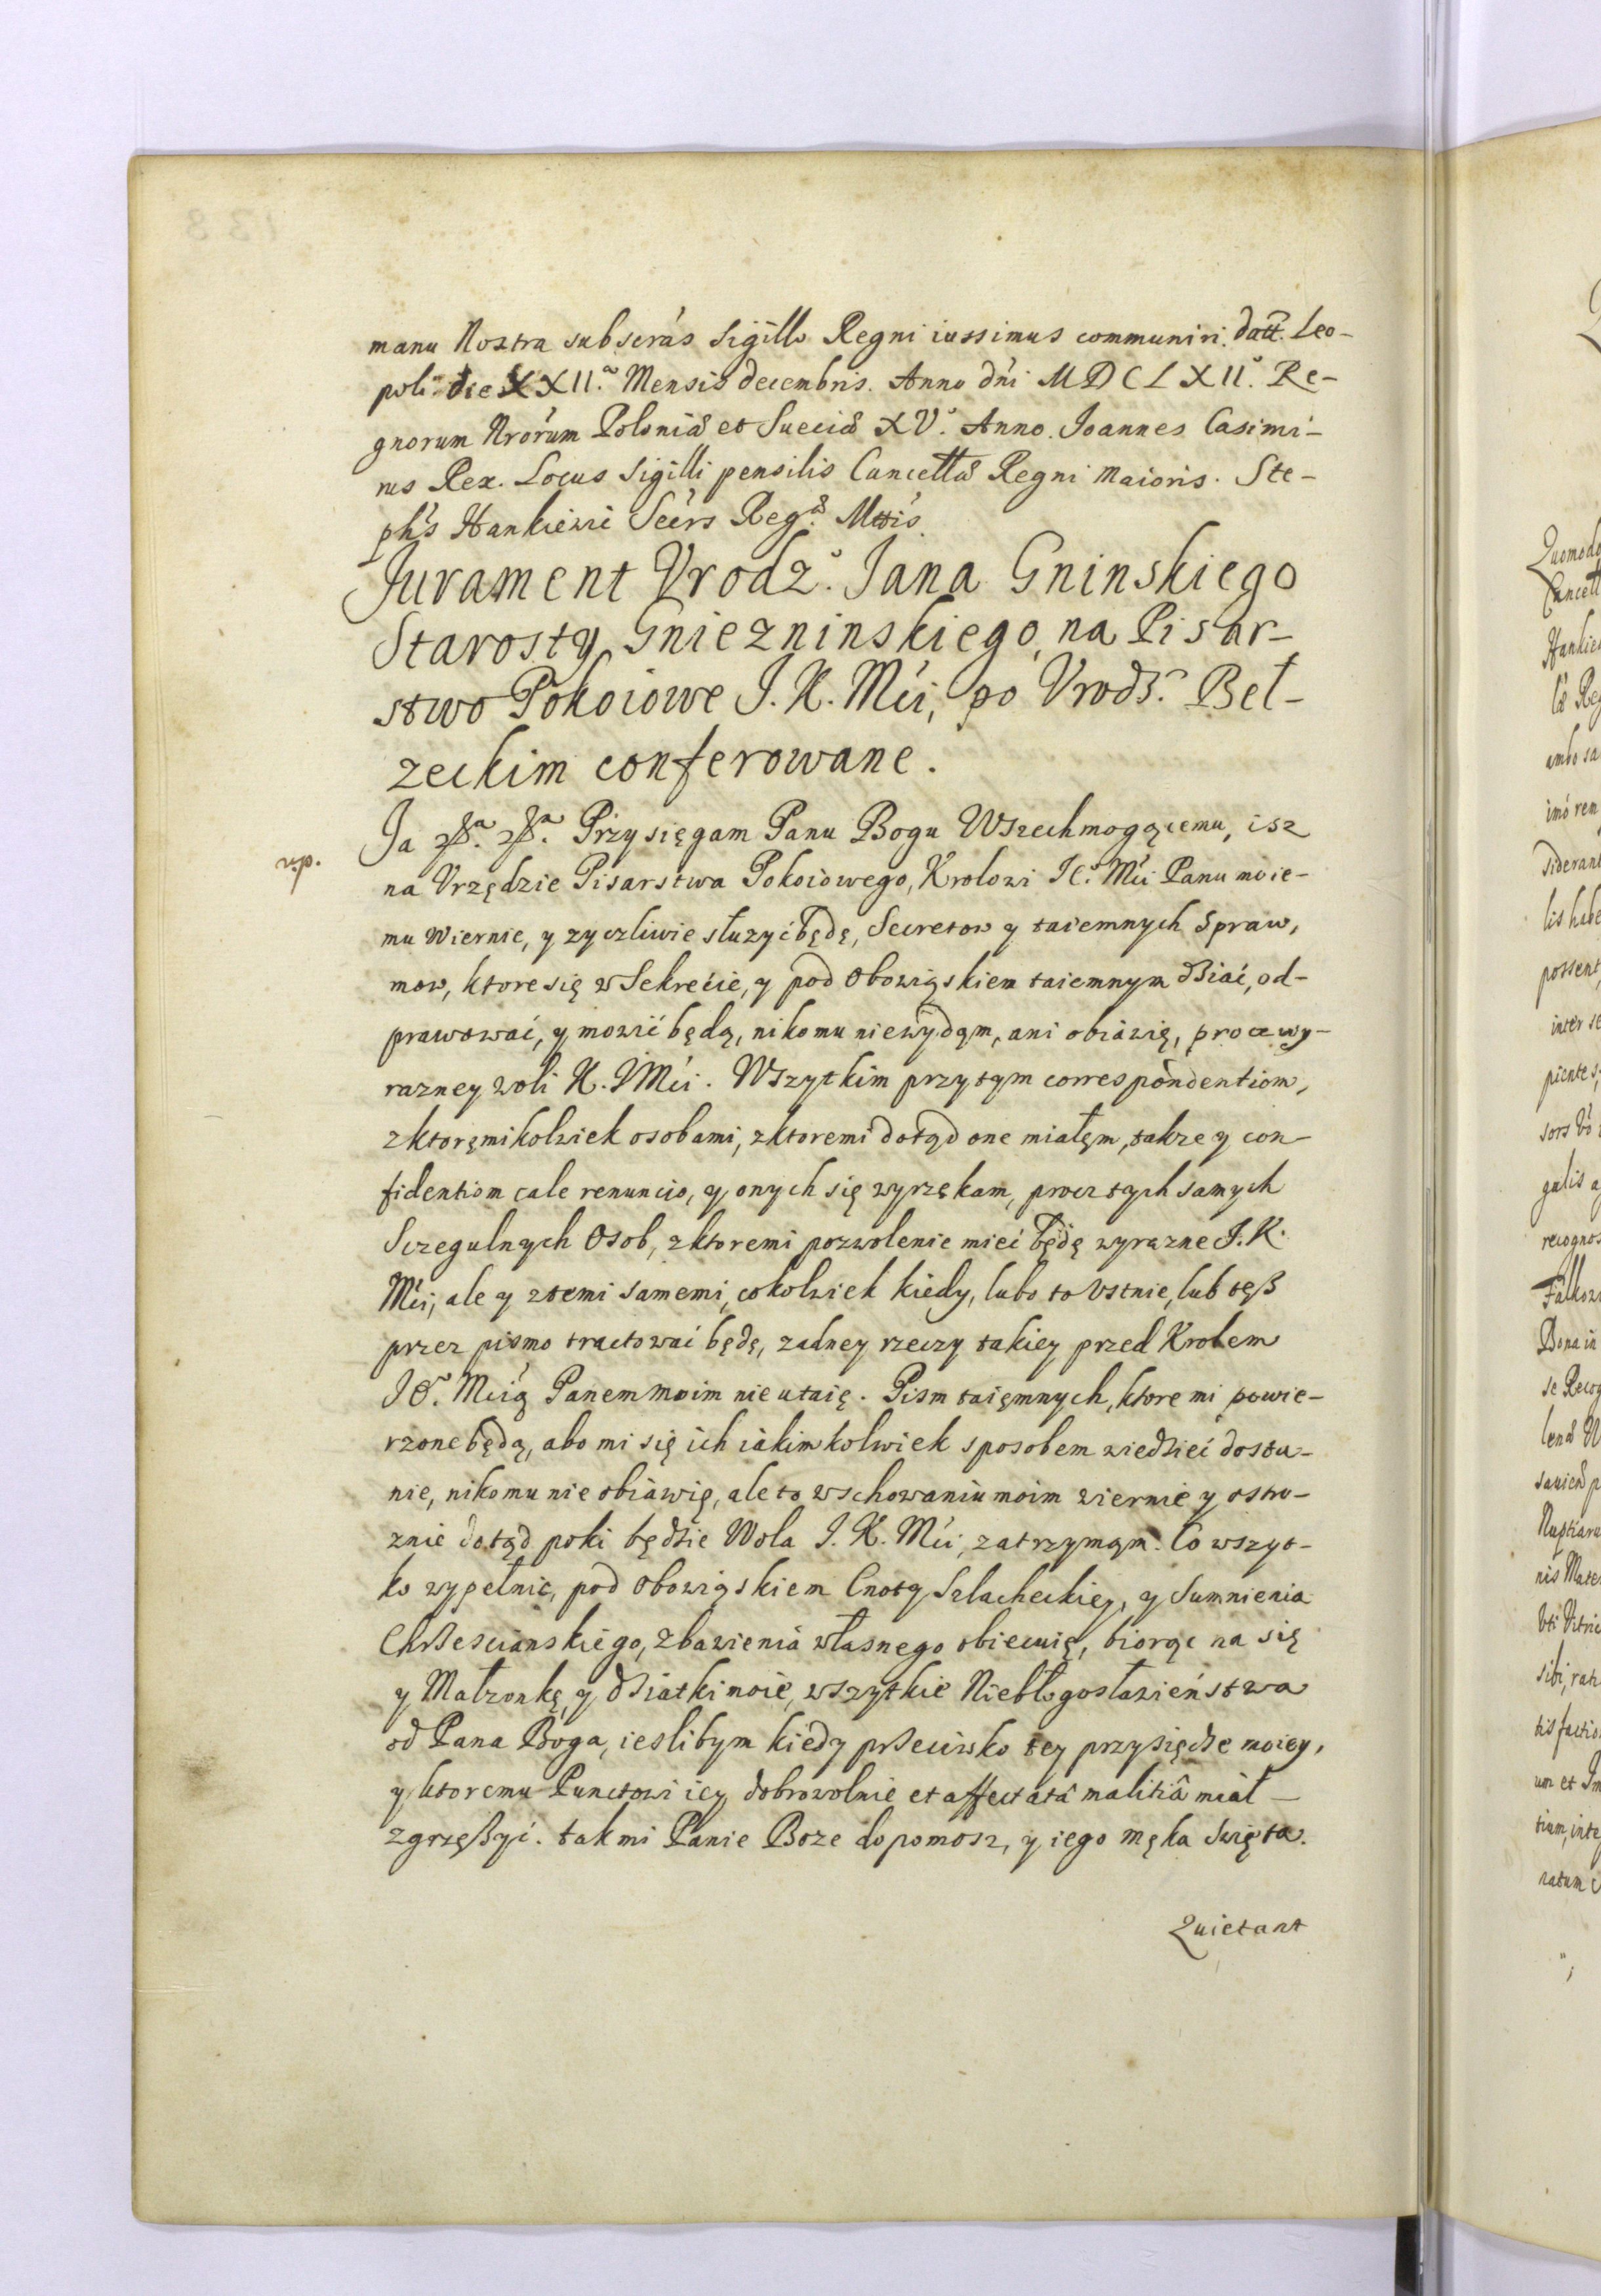 manu Nostra subscrás Sigillo Regni iussimus communiri. Datt. Leo-
poli die XXII.ª Mensis decembris. Anno dńi MDCLXII.º Re-
gnorum Nrórum Poloniæ et Sueciæ XV.º Anno. Joannes Casimi-
rus Rex. Locus Sigilli pensilis Cancellæ Regni Maioris. Ste-
phs Hankiewi Secrs Regæ. Mttis
Jurament Vrodz.º Jana Gninskiego
Starosty Gniezninskiego, na Pisar-
stwo Pokoiowe J. K. Mći, po Vrodz.m Beł-
zeckim conferowane.
Ja N. N. Przysięgam Panu Bogu Wszechmogącemu, isz
na Vrzędzie Pisarstwa Pokoiowego, Krolowi Je.º Mći Panu moie-
mu wiernie, y zyczliwie słuzyć będę, Secretow y taiemnych Spraw,
mow, ktore się w Sekrećie, y pod obowiąskiem taiemnym dziać, od-
prawować, y mowić będą, nikomu niewydam, ani obiáwię, procz wy-
razney woli K. JMći. Wszytkim przytym correspondentiom,
z ktoręmikolwiek osobami, z ktoremi dotąd one miałęm, takze y con-
fidentiom cale renuncio, y onych się wyrzękam, procz tych samych
Sczegulnych Osob, z ktoremi pozwolenie mieć będę wyrazne J. K.
Mći, ale y z temi samemi, cokolwiek kiedy, lubo to Vstnie, lub tęß
przez pismo tractować będę, zadney rzeczy takiey przed Krolem
Je.º Mćią Panem moim nie utaię. Pism taięmnych, ktore mi powie-
rzone będą, abo mi się ich iákimkolwiek sposobem wiedzieć dosta-
nie, nikomu nie obiáwię, ale to w schowaniu moim wiernie y ostro-
znie dotąd poki będzie Wola J. K. Mći, zatrzymąm. Co wszyt-
ko wypełnić, pod obowiąskiem Cnoty Szlacheckiey, y Sumnienia
Chrześcianskiego, zbawienia własnego obiecuię, biorąc na się
y Małzonkę, y dziatki moie, wszytkie Niebłogosławieństwa
od Pana Boga, ieslibym kiedy przeciwko tey przysiędze moiey,
y ktoremu Punctowi iey dobrowolnie et affectatâ malitiâ miał
zgrzęßyć. tak mi Panie Boze dopomosz, y iego męka Swięta.
Quietant